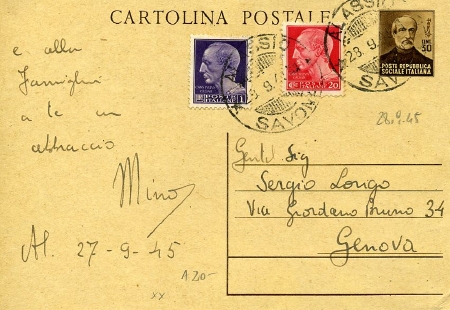 CARTOLINA POSTALE
CENT. 50
POSTE REPUBBLICA
SOCIALE ITALIANA
POSTE ITALIANE 1
20
ALASSIO
28.9.45
SAVONA
ALASSIO
28.9.45
SAVONA
28.9.45
e alla
famiglia
a te un
abbraccio
Mino
Al. 27-9-45
Gent Sig
Sergio Longo
Via Giordano Bruno 34
Genova
120-
xx